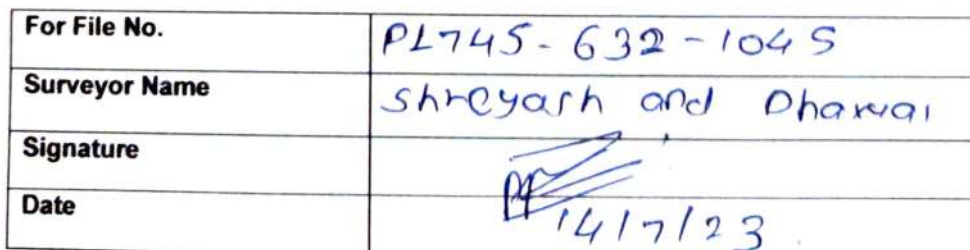 For File No. PL745-632-1045
Surveyor Name Shreyash and Dhawal
Signature
Date 14/7/23